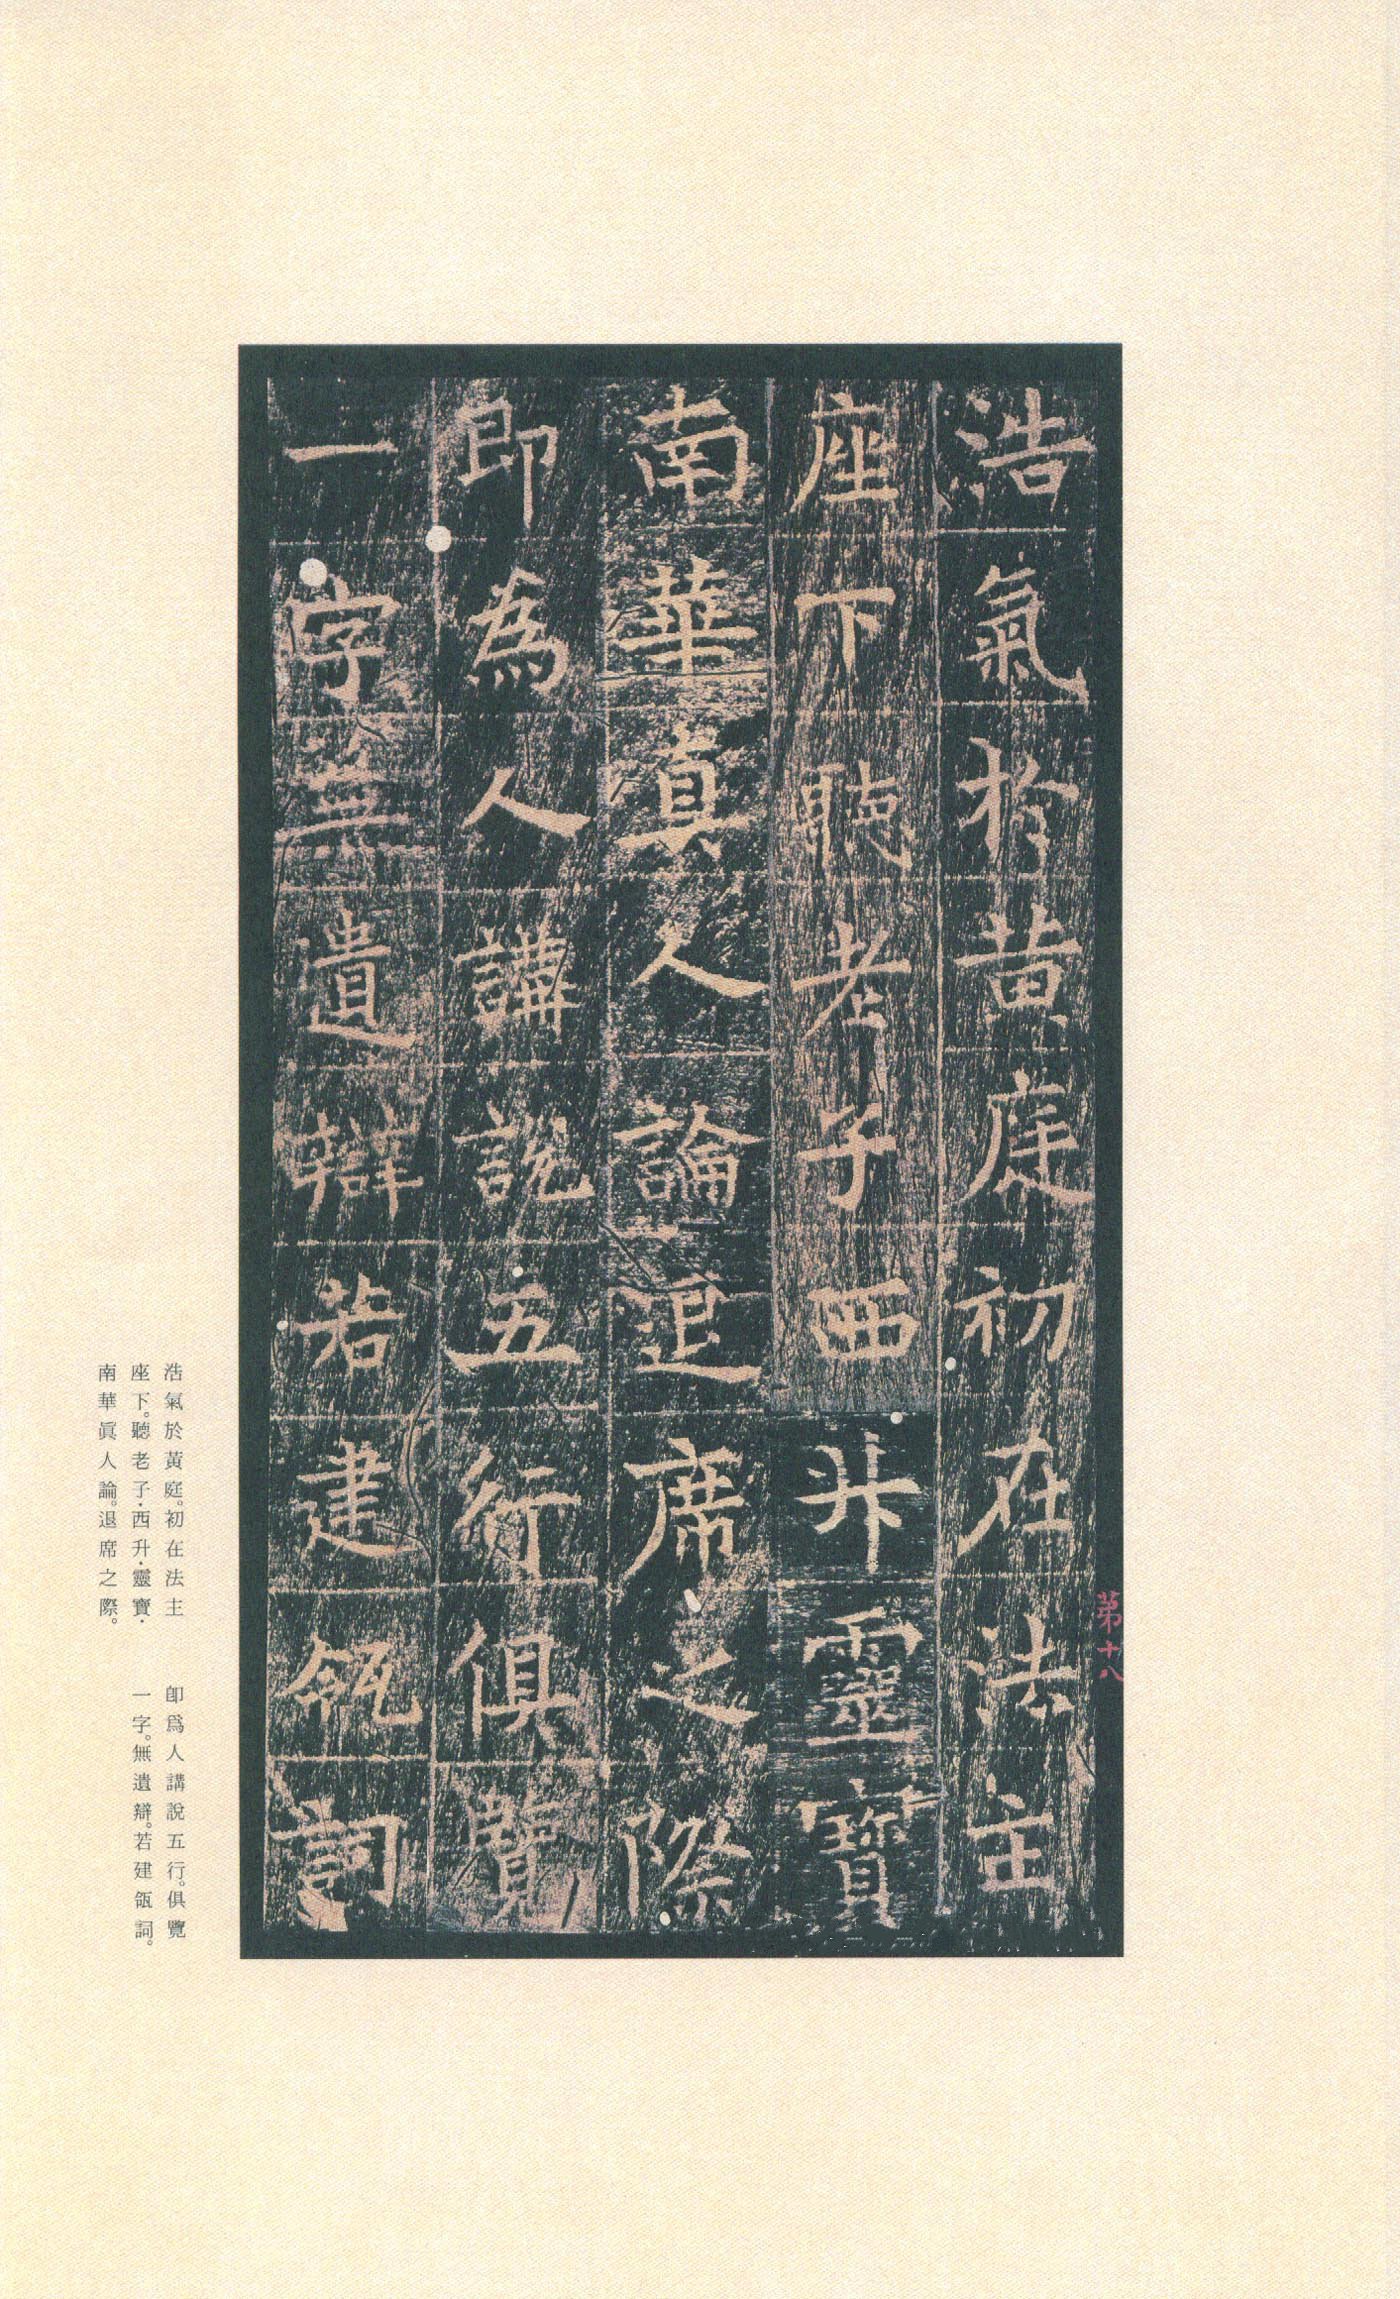 浩氣於黄庭初在法主
座下聽老子西升靈寶
南華真人論退席之際
即為人講說五行俱覽
一字無遺辯若建瓴詞
第十八
浩氣於黃庭。初在法主
座下。聽老子·西升·靈寶·
南華眞人論。退席之際。
卽爲人講說五行。俱覽
一字。無遺辯。若建瓴詞。